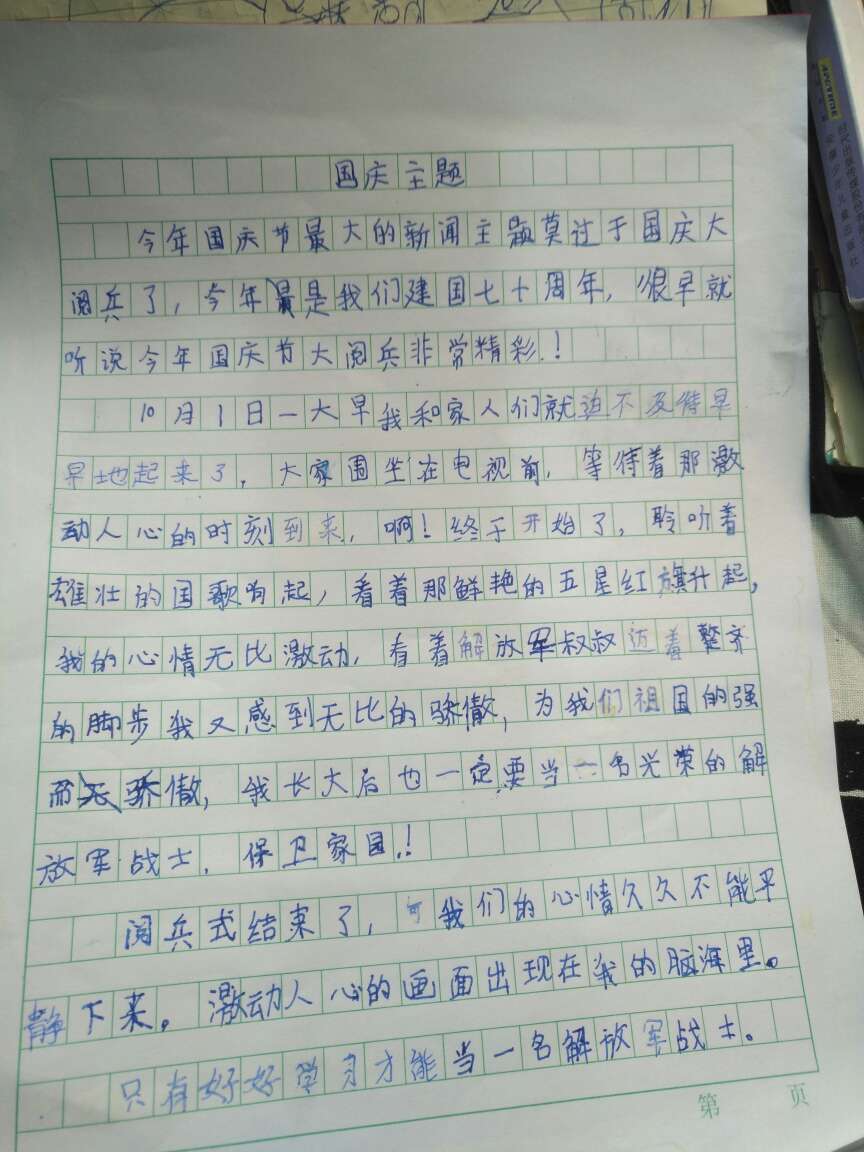 国庆主题
今年国庆节最大的新闻主题莫过于国庆大
阅兵了，今年是我们建国七十周年，很早就
听说今年国庆节大阅兵非常精彩！
10月1日一大早我和家人们就迫不及待早
早地起来了，大家围坐在电视前，等待着那激
动人心的时刻到来，啊！终于开始了，聆听着
雄壮的国歌响起，看着那鲜艳的五星红旗升起，
我的心情无比激动，看着解放军叔叔迈着整齐
的脚步我又感到无比的骄傲，为我们祖国的强
而骄傲，我长大后也一定要当一名光荣的解
放军战士，保卫家国！
阅兵式结束了，可我们的心情久久不能平
静下来。激动人心的画面出现在我的脑海里。
只有好好学习才能当一名解放军战士。
第 页